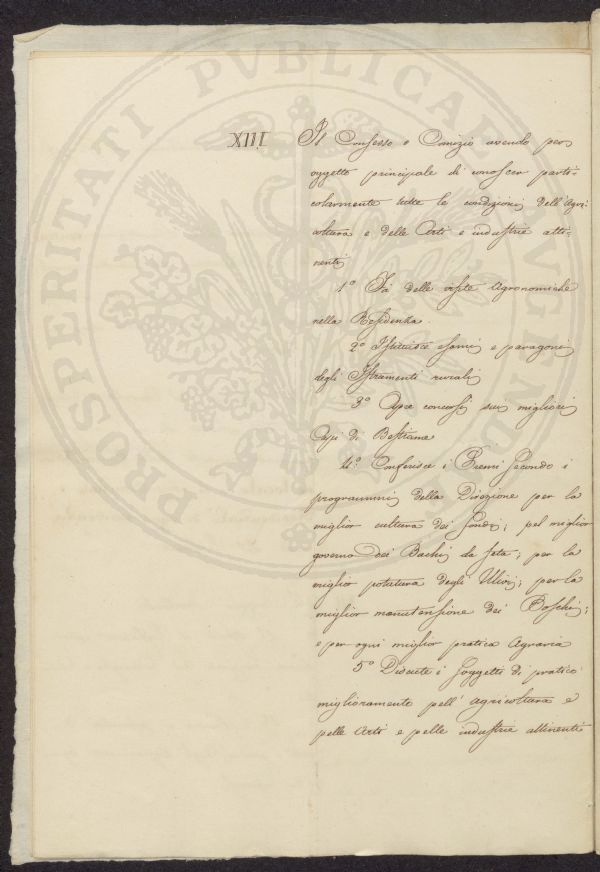 PROSPERITATI PVBLICAE AVGENDAE
XIII Il Consesso o Comizio avendo per
oggetto principale di conoscer parti=
colarmente tutte le condizioni dell'Agri=
coltura e delle Arti e industrie atti=
nenti
1.° Fà delle visite Agronomiche
nella Residenza.
2.° Istituisce esami e paragoni
degli Istrumenti rurali
3.° Apre concorsi sui migliori
Capi di Bestiame
4.° Conferisce i Premi secondo i
programmi della Direzione per la
miglior cultura dei fondi; pel miglior
governo dei Bachi da seta; per la
miglior potatura degli Ulivi; per la
miglior manutensione dei Boschi;
e per ogni miglior pratica Agraria
5.° Discute i soggetti di pratico
miglioramento pell'agricoltura e
pelle Arti e pelle industrie attinenti